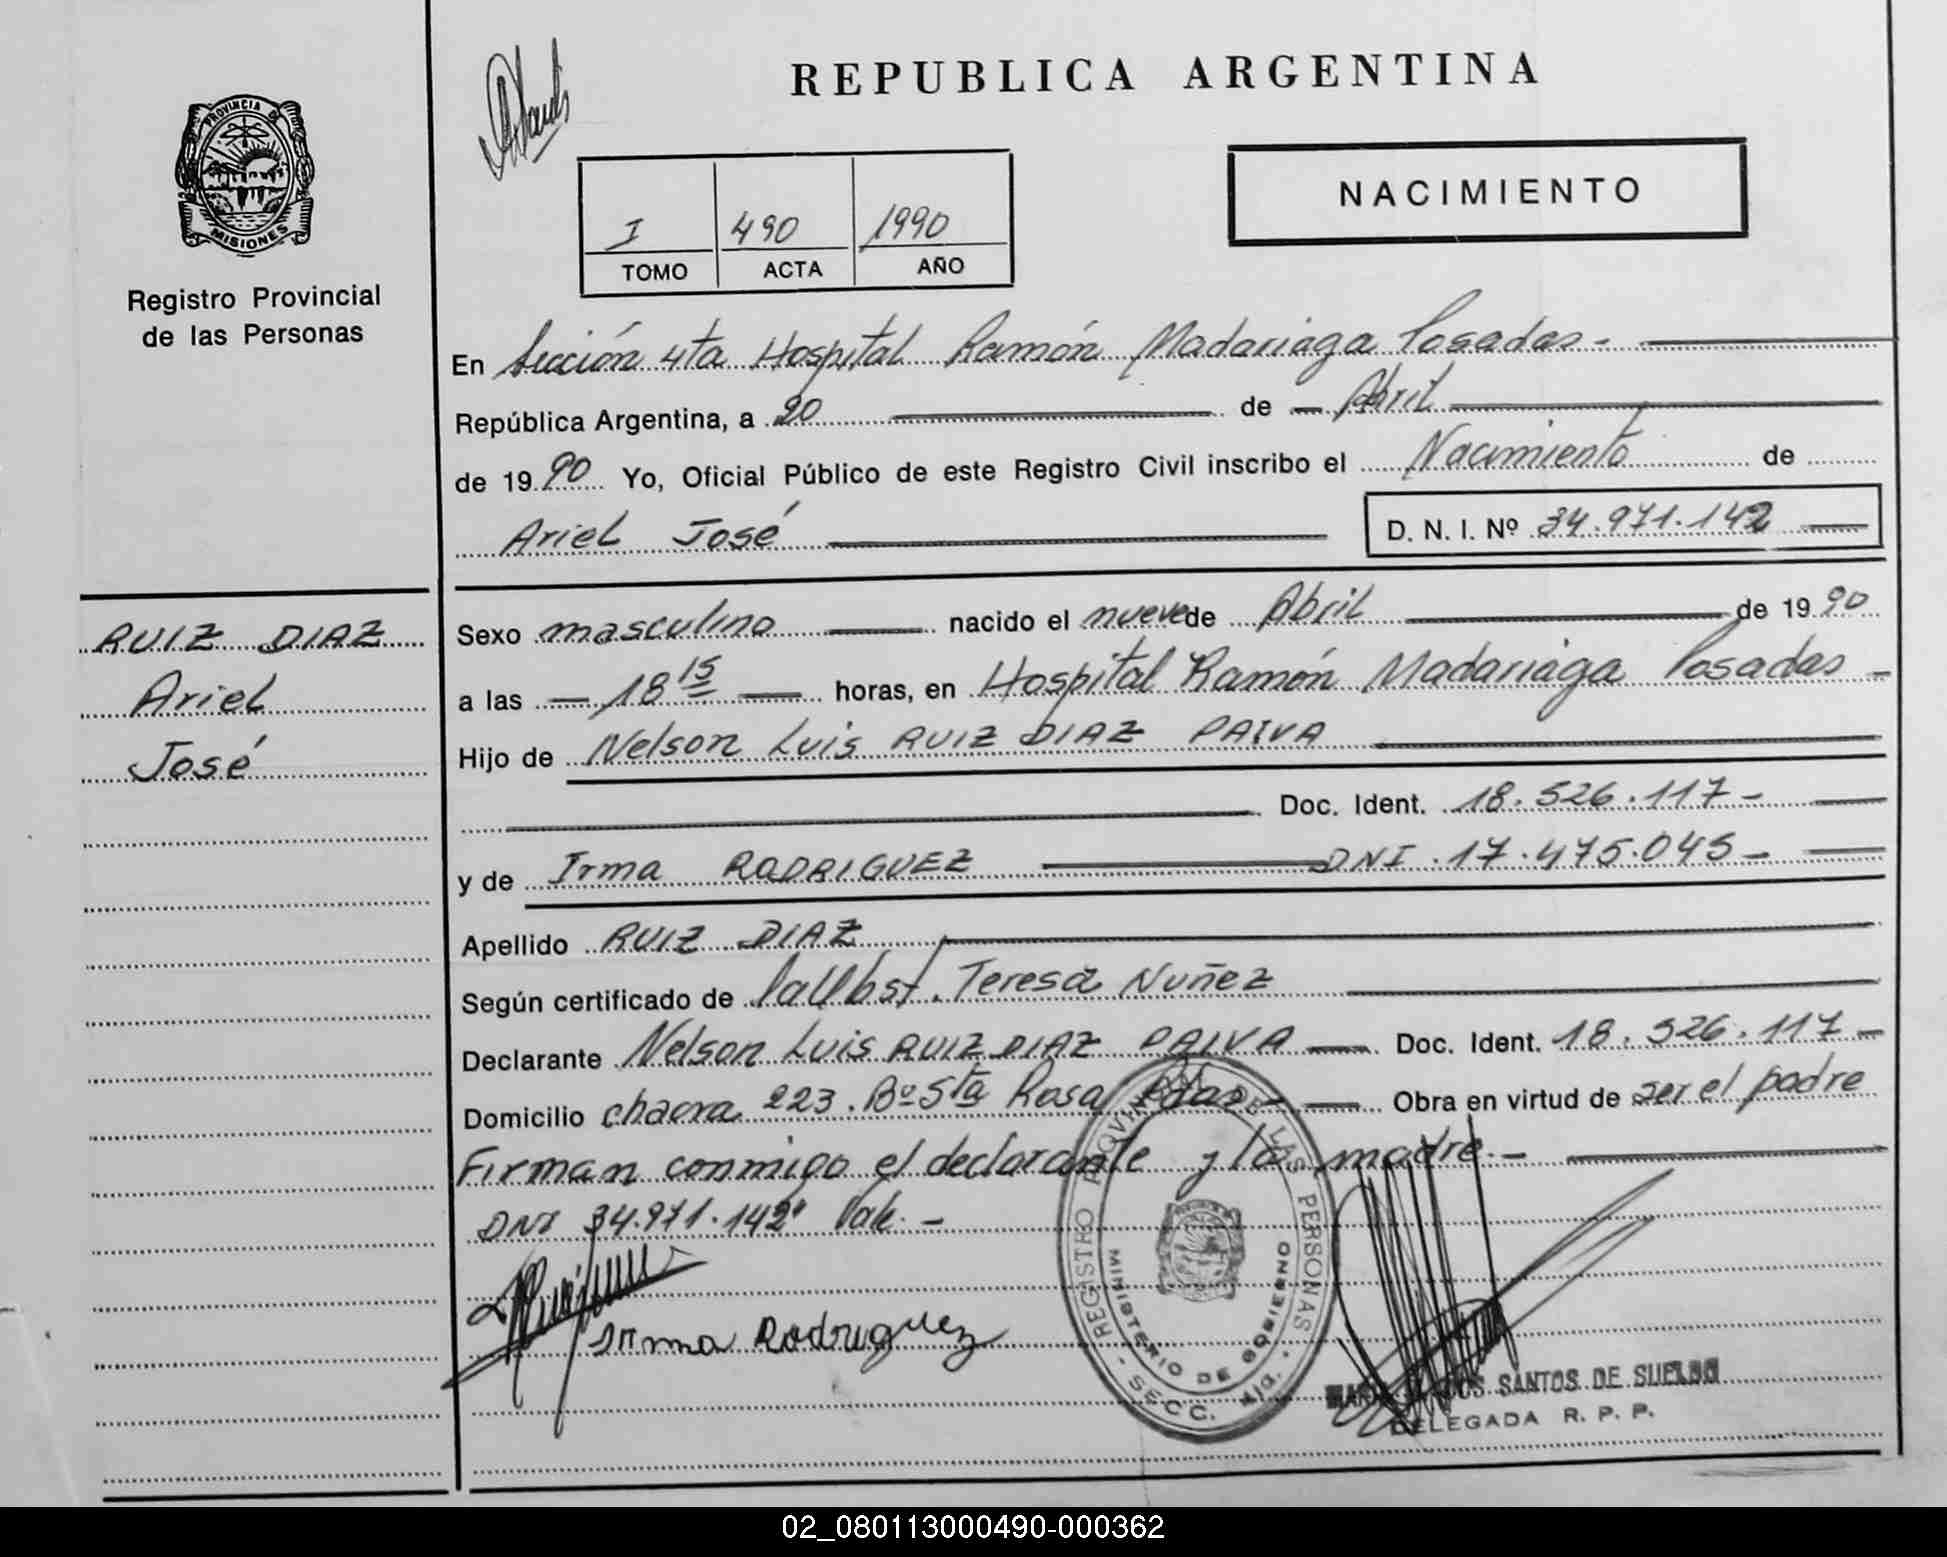 PROVINCIA DE
MISIONES
Registro Provincial
de las Personas
RUIZ DIAZ
Ariel
José
REPUBLICA ARGENTINA
NACIMIENTO
I 490 1990
TOMO ACTA AÑO
En Sección 4ta Hospital Ramón Madariaga Posadas.-
República Argentina, a 20 de Abril
de 1990 Yo, Oficial Público de este Registro Civil inscribo el Nacimiento de
Ariel José D. N. I. Nº 34.971.142
Sexo masculino nacido el nueve de Abril de 1990
a las 18 15 horas, en Hospital Ramón Madariaga Posadas
Hijo de Nelson Luis RUIZ DIAZ PAIVA
Doc. Ident. 18.526.117-
y de Irma RODRIGUEZ DNI.17.475.045-
Apellido RUIZ DIAZ
Según certificado de Teresa Nuñez
Declarante Nelson Luis RUIZ DIAZ PAIVA Doc. Ident. 18.526.117-
Domicilio chacra 223. Bº Sta Rosa Pdas- Obra en virtud de ser el padre
Firman conmigo el declarante y la madre.-
DNI 34.971.142" Vale.-
Irma Rodriguez
REGISTRO PROVINCIAL DE LAS PERSONAS
MINISTERIO DE GOBIERNO
SECC.
SANTOS DE SUELDO
DELEGADA R. P. P.
02_080113000490-000362